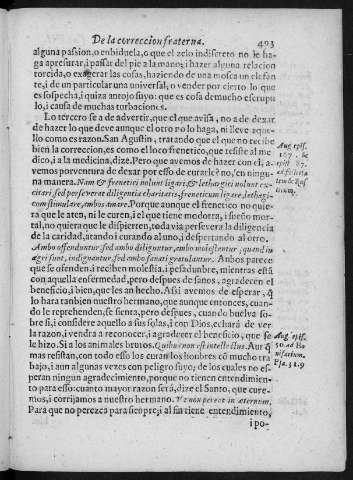 De la correccion fraterna. 403
alguna passion, o enbiduela, o que el zelo indiscreto no le ha-
ga apresurar, i passar del pie a la mano; i hazer alguna relacion
torcida, o exagerar las cosas, haziendo de una mosca un elefan
te, i de un particular una universal, o vender por cierto lo que
es sospecha, i quiza antojo suyo: que es cosa de mucho escrupu
lo, i causa de muchas turbaciones.
Lo tercero se a de advertir, que el que avisa, no a de dexar
de hazer lo que deve aunque el otro no lo haga, ni lleve aque-
llo como es razon. San Agustin, tratando el que no recibe
bien la correccion; es como el loco frenetico, que resiste al me-
dico, i a la medicina, dize. Pero que avemos de hazer con el, a-
vemos por ventura de dexar por esso de curarle? no, en ningu-
na manera. Nam & frenetici nolunt ligari, & lethargici nolunt ex-
citari, sed perseverat diligentia charitatis, freneticum ligare, lethargi-
cum stimulare, ambos amare. Porque aunque el frenetico no quie
ra que le aten, ni le curen, i el que tiene modorra, i sueño mor-
tal, no quiera que le dispierten, toda via persevera la diligencia
de la caridad, atando i curando al uno, i despertando al otro.
Ambo offenduntur, sed ambo diliguntur, ambo molestantur, quandiu
ægri sunt, indignantur, sed ambo sanati gratulantur. Anbos parece
que se ofenden, i reciben molestia, i pesadunbre, mientras està
con aquella enfermedad, pero despues de sanos, agradecen el
beneficio, i bien, que les an hecho. Asi avemos de esperar, q̃
lo hara tanbien nuestro hermano, que aunque entonces, cuan-
do le reprehenden, se sienta, pero despues, cuando buelva so-
bre si, i considere aquello a sus solas, i con Dios, echarà de ver
la razon, i vendra a reconocer, i agradecer el beneficio, que se
le hizo. Si a los animales brutos. Quibus non est intellectus. Aun q̃
mas resistan, con todo esso los curan los honbres cõ mucho tra
bajo, i aun algunas vezes con peligro suyo; de los cuales no es-
peran ningun agradecimiento, porque no tienen entendimien-
to para esso: cuanto mayor razon serà, dize el Santo, que cure-
mos, i corrijamos a nuestro hermano. Ve non pereat in æternum.
Para que no perezca para sienpre; al fin tiene entendimiento,
i po-
Aug epis.
Aug epis.
50. ad Bo
nifacium.
Psa. 31. 9